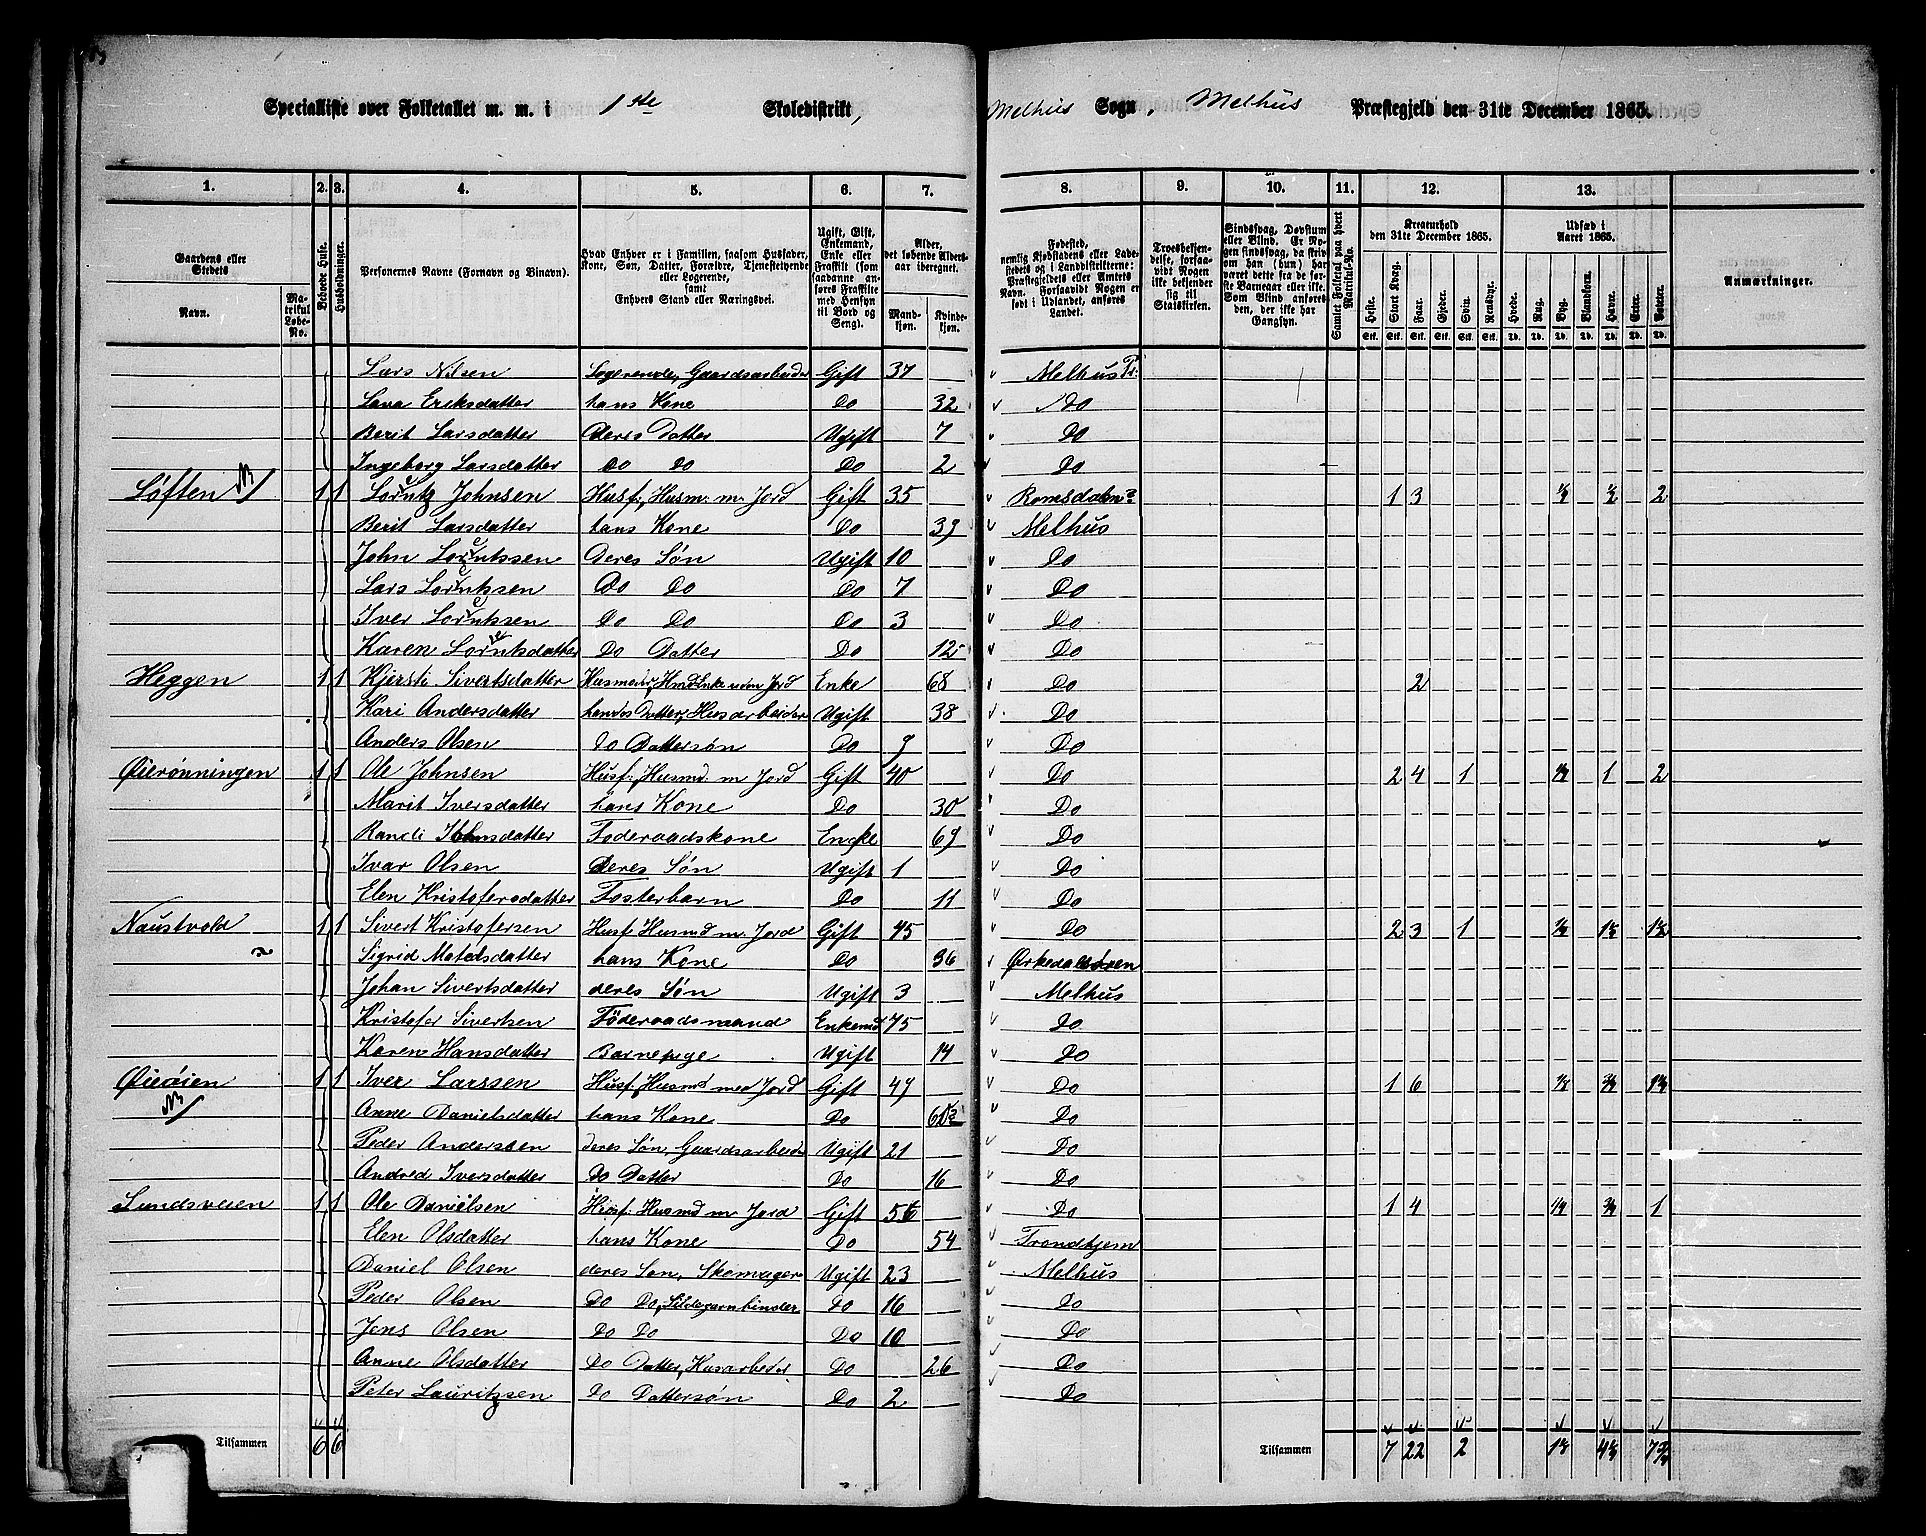 Specialliste over Folketallet m. m. i 1ste Skoledistrikt, Melhus Sogn, Melhus Præstegjeld den 31te December 1865.
1. 2. 3. 4. 5. 6. 7. 8. 9. 10. 11. 12. 13.
Gaardens eller Stedets Navn. Matrikul Løbe-No. Beboede Huse. Husholdninger. Personernes Navne (Fornavn og Binavn). Hvad Enhver er i Familien, saasom Husfader, Kone, Søn, Datter, Forældre, Tjenestetyende eller Logerende, samt Enhvers Stand eller Næringsvei. Ugift, Gift, Enkemand, Enke eller Fraskilt (som saadanne anføres Fraskilte med Hensyn til Bord og Seng). Alder, det løbende Aldersaar iberegnet. Mandkjøn. Kvindekjøn.
Fødested, nemlig Kjøbstadens eller Ladestedets og i Landdistrikterne: Præstegjeldets eller Amtets Navn. Forsaavidt Nogen er født i Udlandet, anføres Landet. Troesbekjendelse, forsaavidt Nogen ikke bekjender sig til Statskirken. Sindssvag, Døvstum eller Blind. Er Nogen sindssvag, da skriv om han (hun) har været dette fra de første Barneaar eller ikke. Som Blind anføres den, der ikke har Gangsyn. Samlet Folketal paa hvert Matrikul-No. Kreaturhold den 31te December 1865. Heste. Stort Kvæg. Faar. Gjeder. Svin. Rensdyr. Udsæd i Aaret 1865. Hvede. Rug. Byg. Blandkorn. Havre. Erter. Poteter. Anmærkninger.
Lars Nilsen Logerende, Gaardsarbeider Gift 37 Melhus Pr.
Eriksdatter hans Kone Do 32 Do
Berit Larsdatter Deres Datter Ugift 7 Do
Ingeborg Larsdatter Do Do Do 2 Do
Løften 1 1 Lorentz Johnsen Husf., Husm. m. Jord Gift 35 1 3 ½ ½ 2
Berit Larsdatter hans Kone Do 39 Melhus
John Lorentssen Deres Søn Ugift 10 Do
Lars Lorentssen Do Do Do 7 Do
Iver Lorentssen Do Do Do 3 Do
Karen Lorentsdatter Do Datter Do 12 Do
Heggen 1 1 Kjersti Sivertsdatter Enke uden Jord Enke 68 Do 2
Kari Andersdatter hendes Datter, Husarbeider Ugift 38 Do
Anders Olsen Do Dattersøn Do 9 Do
Øierønningen 1 1 Ole Johnsen Husf., Husmd. m Jord Gift 40 Do 2 4 1 1 2
Marit Iversdatter hans Kone Do 30 Do
Randi Johnsdatter Føderaadskone Enke 69 Do
Ivar Olsen deres Søn Ugift 1 Do
Elen Kristofersdatter Fosterbarn Do 11 Do
Naustvold 1 1 Sivert Kristofersen Husf. Husmd m. Jord Gift 45 Do 2 3 1 1½ 1½
Sigrid hans Kone Do 36 Ørkedalsøren
Johan Sivertsdatter deres Søn Ugift 3 Melhus
Kristofer Sivertsen Føderaadsmand Enkemd 75 Do
Karen Hansdatter Barnepige Ugift 14 Do
Øieøien 1 1 Iver Larssen Husf., Husmd med Jord Gift 47 Do 1 6
Anne Danielsdatter hans Kone Do Do
Peder Anderssen deres Søn, Gaardsarbeider Ugift 21 Do
Iversdatter Do Datter Do 16 Do
Lundsveien 1 1 Ole Danielsen Husf. Husmd m Jord Gift 56 Do 1 4 1
Elen Olsdatter hans Kone Do 54 Trondhjem
Daniel Olsen deres Søn, Skomager Ugift 23 Melhus
Peder Olsen Do Do, Sildegarnbinder Do 16 Do
Jens Olsen Do Do Do 10 Do
Anne Olsdatter Do Datter, Husarbeider Do 26 Do
Peter Lauritzsen Do Dattersøn Do 2 Do
Tilsammen 6 6 Tilsammen 7 22 2